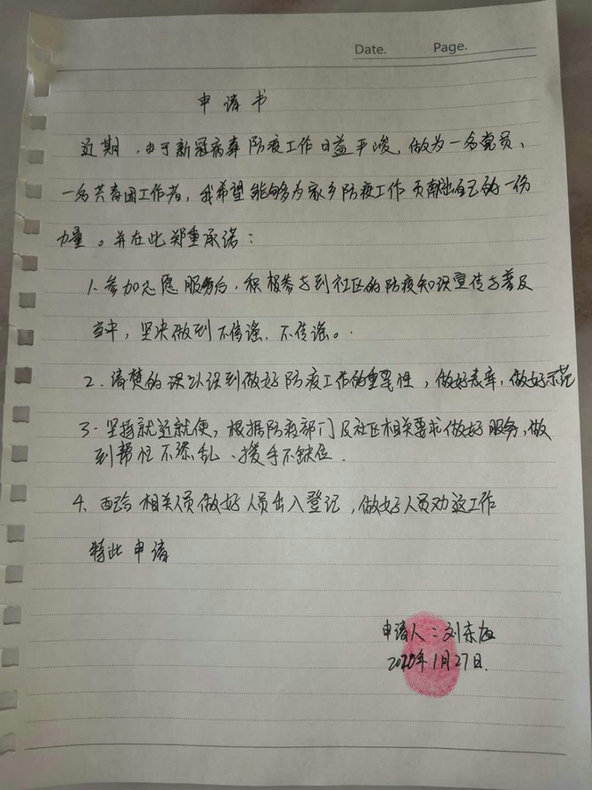 Date. Page.
申请书
近期,由于新冠病毒防疫工作日益严峻,做为一名党员、
一名共青团工作者,我希望能够为家乡防疫工作贡献出自己的一份
力量。并在此郑重承诺:
1.参加志愿服务后,积极参与到社区的防疫知识宣传与普及
当中,坚决做到不信谣,不传谣。
2.清楚的认识到做好防疫工作的重要性,做好表率,做好示范
3.坚持就近就便,根据防疫部门及社区相关要求做好服务,做
到帮忙不添乱、援手不缺位.
4.配合相关人员做好人员出入登记,做好人员劝返工作
特此申请
申请人:刘东
2020年1月27日.